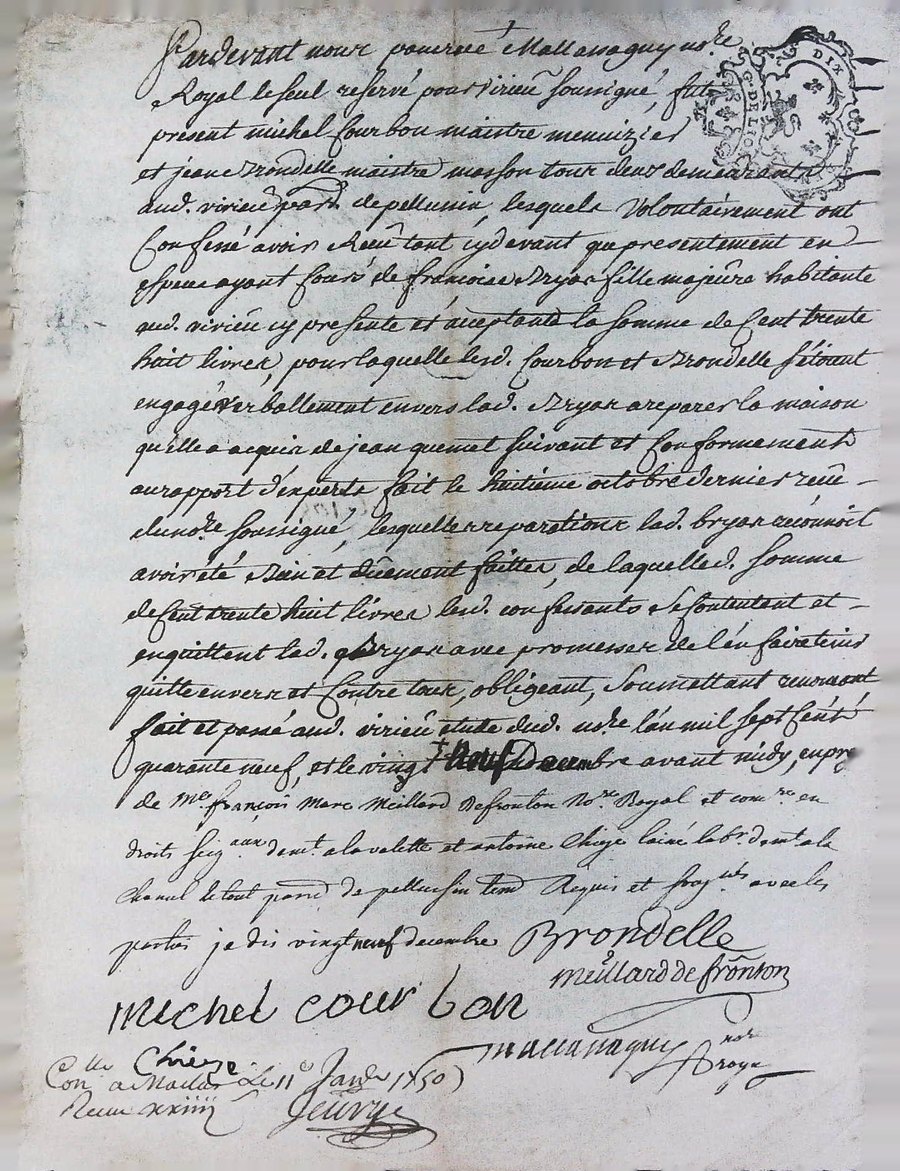 Pardevant nous pancrace Mallassagny no.re
Royal le seul reservé pour virieu soussigné, fut
DIX
G. DE LION
present michel Courbon maistre menuizier
et jean Brondelle maistre masson tous deux demeurants
aud. virieu parr.e de pellussin, lesquels volontairement ont
Confessé avoir Receu tant cydevant que presentement en
espece ayant Cours de francoise Bryas fille majeure habitante
aud. virieu cy presente et acceptante la somme de Cent trente
huit livres, pour laquelle lesd. Courbon et Brondelle s'étoient
engagé verballement envers lad. Bryas a reparer la maison
quelle a acquis de jean quemet suivant et Conformement
au rapport d'experts fait le huitième octobre dernier receu
dud no.re soussigné, lesquelles reparations lad. bryas reconnoit
avoir été Bien et duement faittes, de laquelle d. somme
de Cent trente huit livres lesd. confessants se Contentent et
en quittent lad. Bryas avec promesses de l'en faire tenir
quitte envers et Contre tous, obligeant, soumettant renoncant
fait et passé aud. virieu etude dud. no.re l'an mil sept Cent
quarante neuf, et le vingt neuf Decembre avant midy, en pre
de M.e françois Marc Meillard Defronton No.re Royal et com.re en
droits seig.aux dem.t a la valette et antoine Chieze laine lab.r dem.t a la
Chanal le tout parr.e de pellussin tem. Requis et soug.nés avec les
parties je dis vingt neuf decembre Brondelle
meillard de fronton
michel courbon
mallassagny no.re Royal
Chieze
Con.lle a Maclas Le 11e Janv. 1750
Receu xxiiij s Jeurye